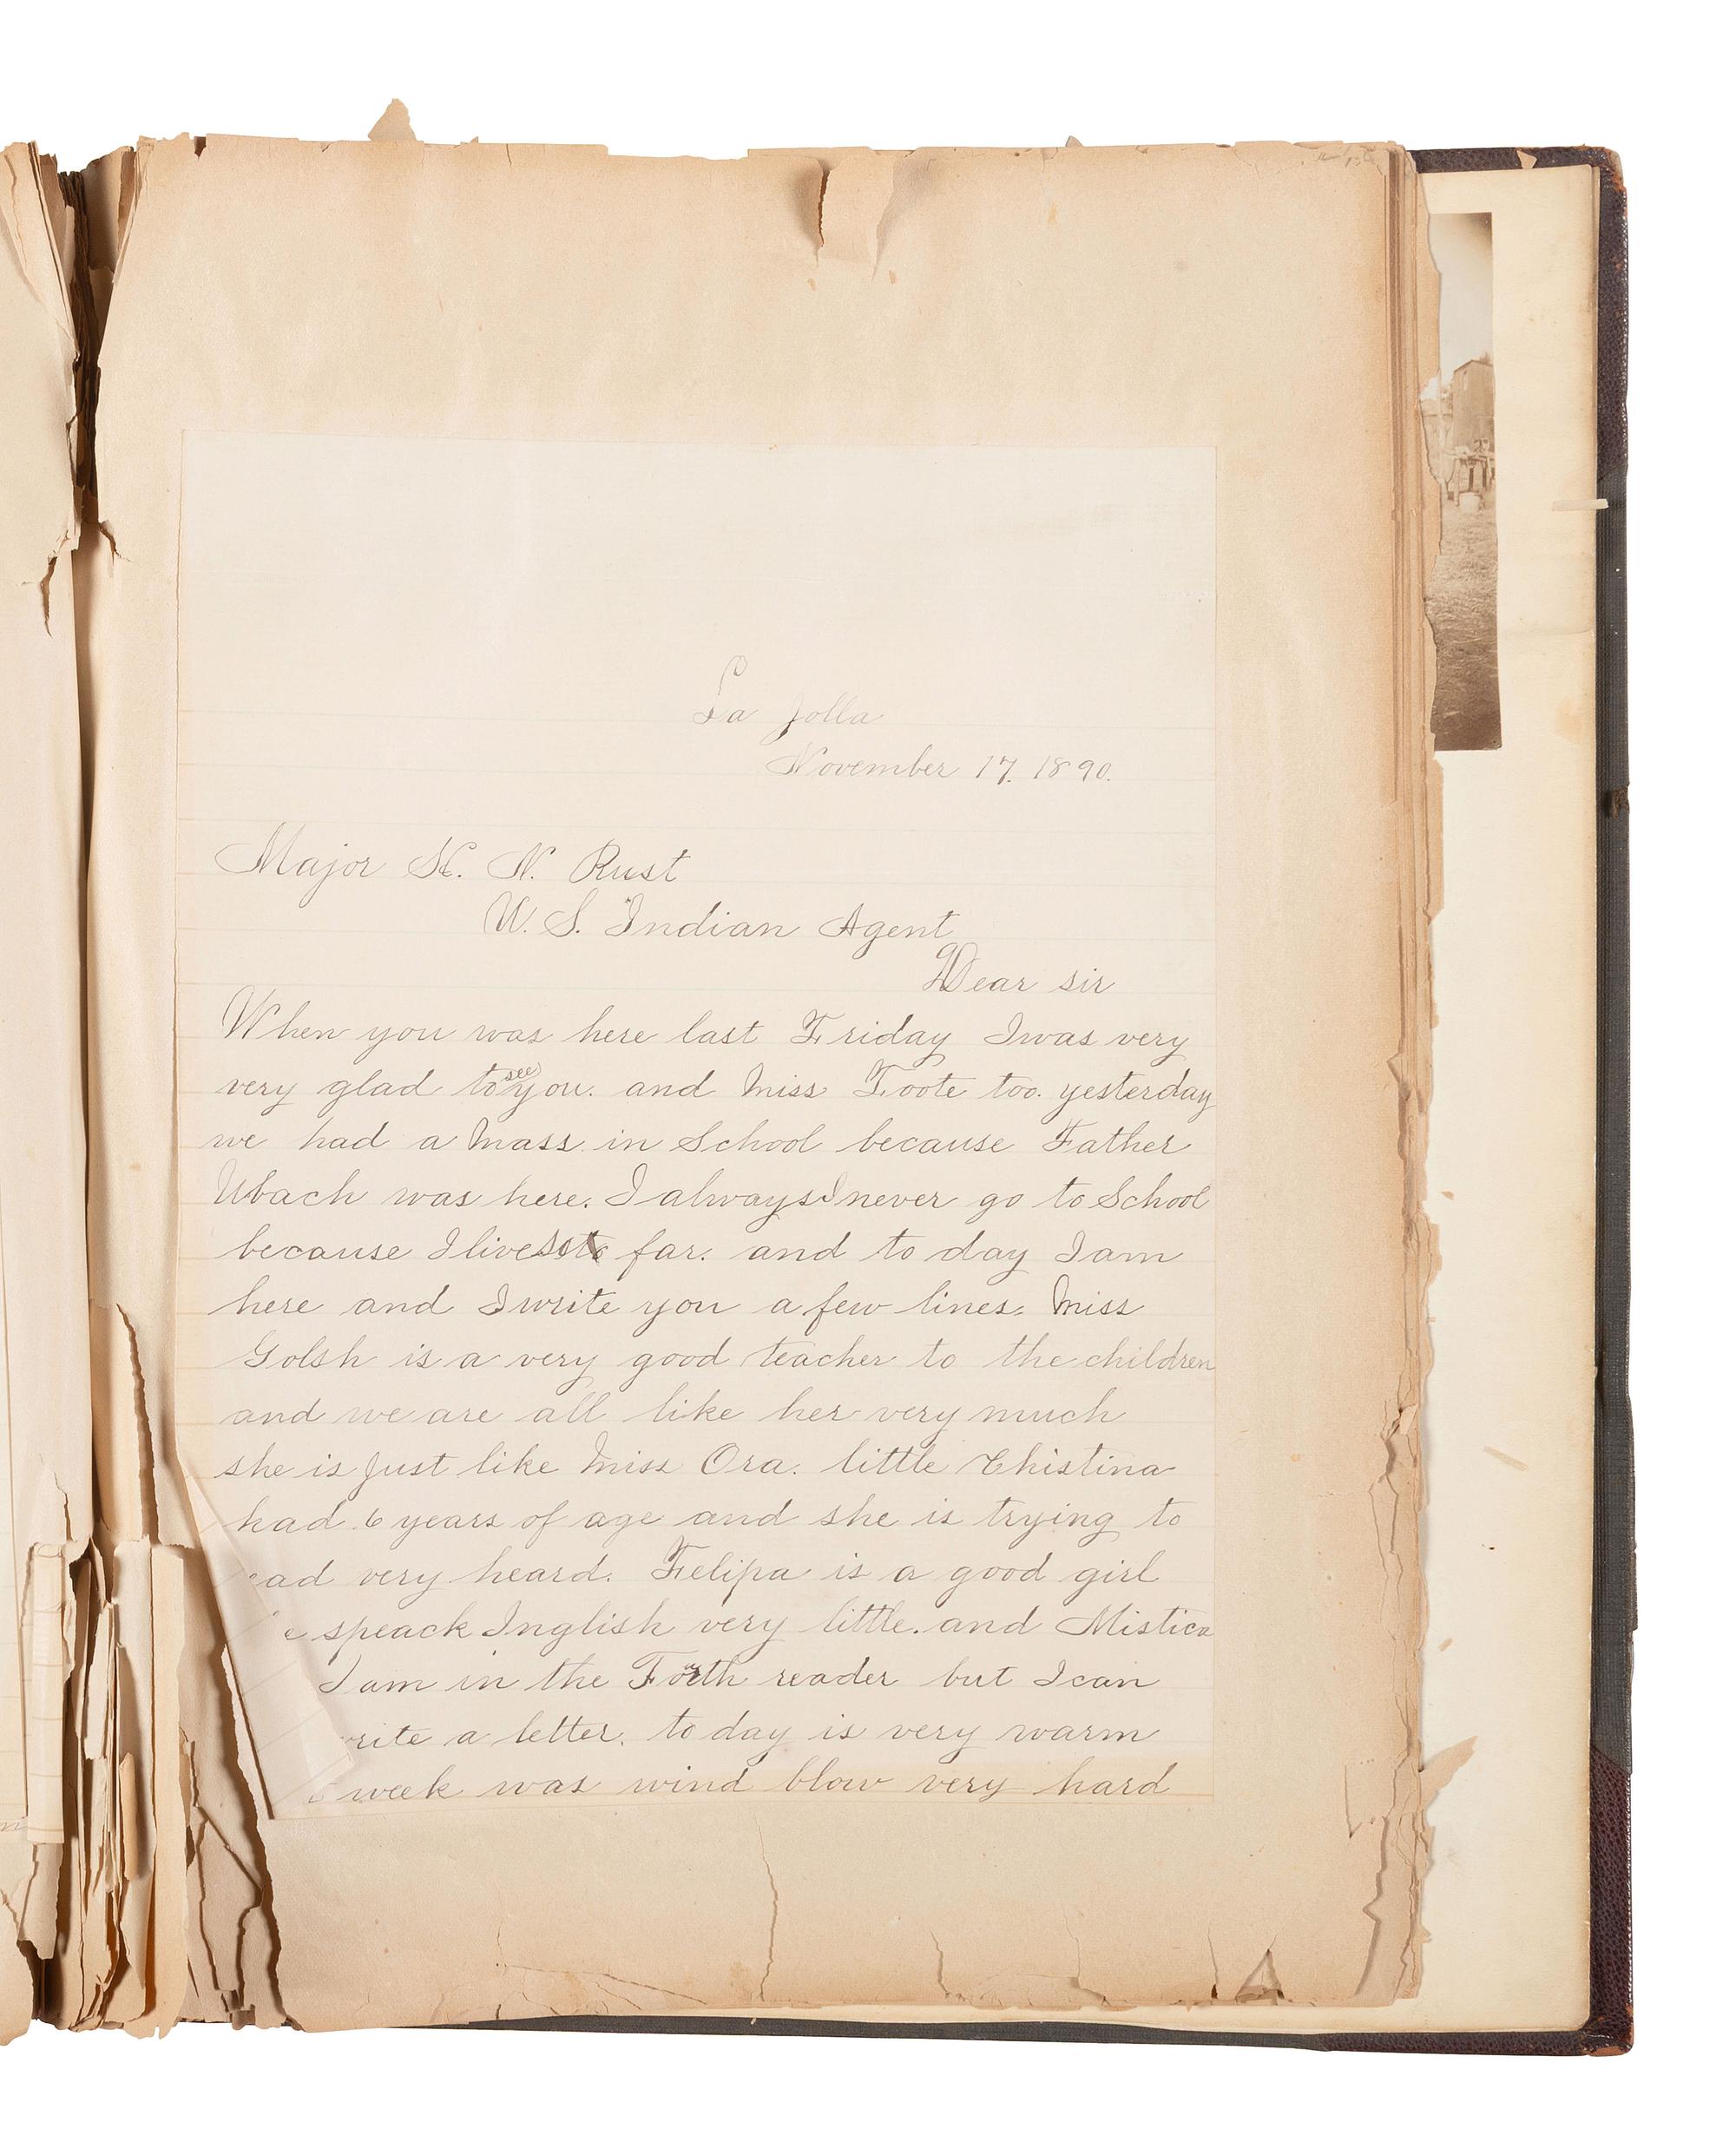 La Jolla
November 17. 1890.
Major H. N. Rust
U. S. Indian Agent
Dear sir
When you was here last Friday I was very
very glad to see you. and Miss Foote too. yesterday
we had a Mass. in School because Father
Ubach was here. I always I never go to School
because I live far. and to day I am
here and I write you a few lines. Miss
Golsh is a very good teacher to the children
and we are all like her very much
she is just like Miss Ora. little Chistina
had 6 years of age and she is trying to
ead very heard. Felipa is a good girl
e speack Inglish very little. and Mistica
I am in the Fourth reader but I can
rite a letter. to day is very warm
week was wind blow very hard